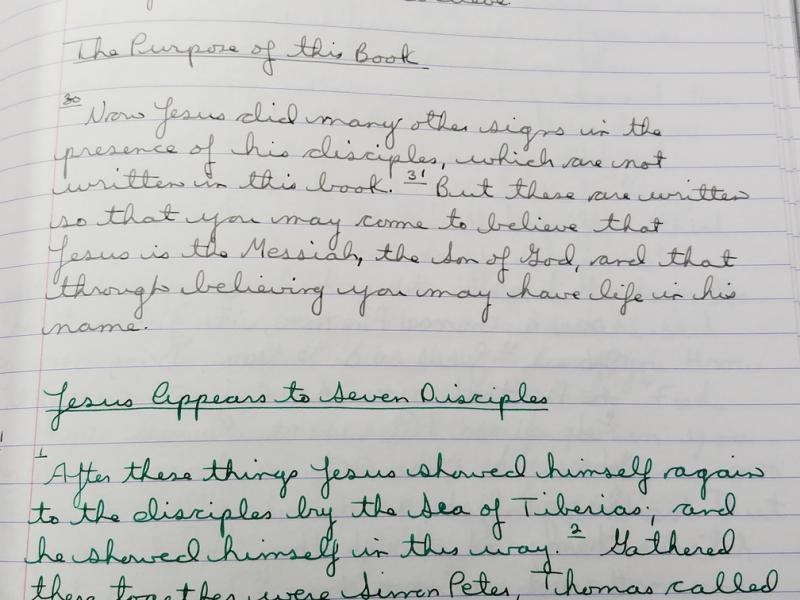 The Purpose of this Book
30 Now Jesus did many other signs in the
presence of his disciples, which are not
written in this book. 31 But these are written
so that you may come to believe that
Jesus is the Messiah, the Son of God, and that
through believing you may have life in his
name.
Jesus Appears to Seven Disciples
1 After these things Jesus showed himself again
to the disciples by the Sea of Tiberias; and
he showed himself in this way. 2 Gathered
there together were Simon Peter, Thomas called